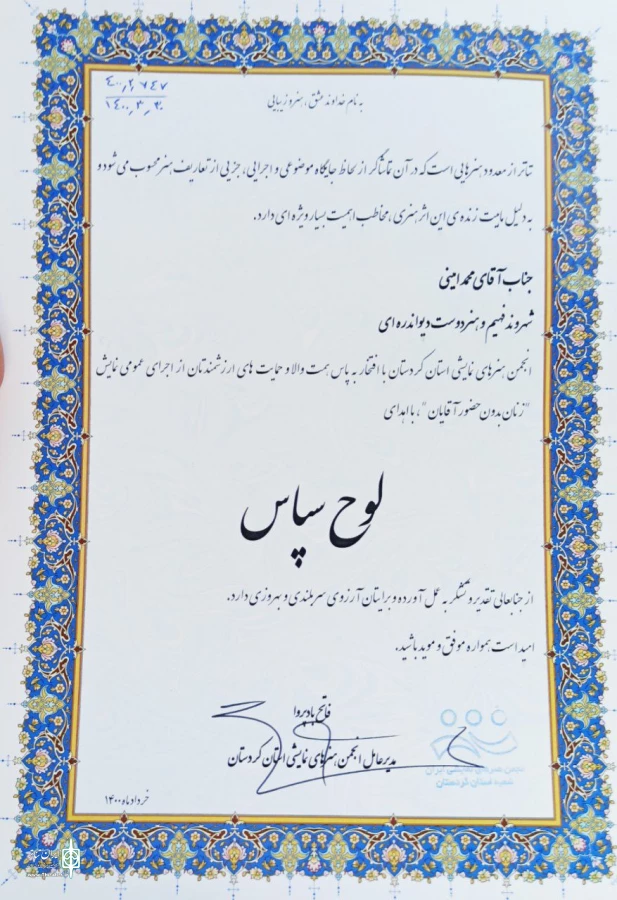 ۴۰۰٫۲٫۷۴۷
۱۴۰۰٫۳٫۲۰
به نام خداوند عشق، هنر و زیبایی
تئاتر از معدود هنرهایی است که در آن تماشاگر از لحاظ جایگاه موضوعی و اجرایی، جزیی از تعاریف هنر محسوب می شود و
به دلیل ماهیت زنده ی این اثر هنری، مخاطب اهمیت بسیار ویژه ای دارد.
جناب آقای محمد امینی
شهروند فهیم و هنردوست دیواندره ای
انجمن هنرهای نمایشی استان کردستان با افتخار به پاس همت والا و حمایت های ارزشمندتان از اجرای عمومی نمایش
"زنان بدون حضور آقایان"، با اهدای
لوح سپاس
از جنابعالی تقدیر و تشکر به عمل آورده و برایتان آرزوی سربلندی و بهروزی دارد.
امید است همواره موفق و موید باشید.
فاتح بادپروا
مدیرعامل انجمن هنرهای نمایشی استان کردستان
انجمن هنرهای نمایشی ایران
شعبه استان کردستان
خرداد ماه ۱۴۰۰